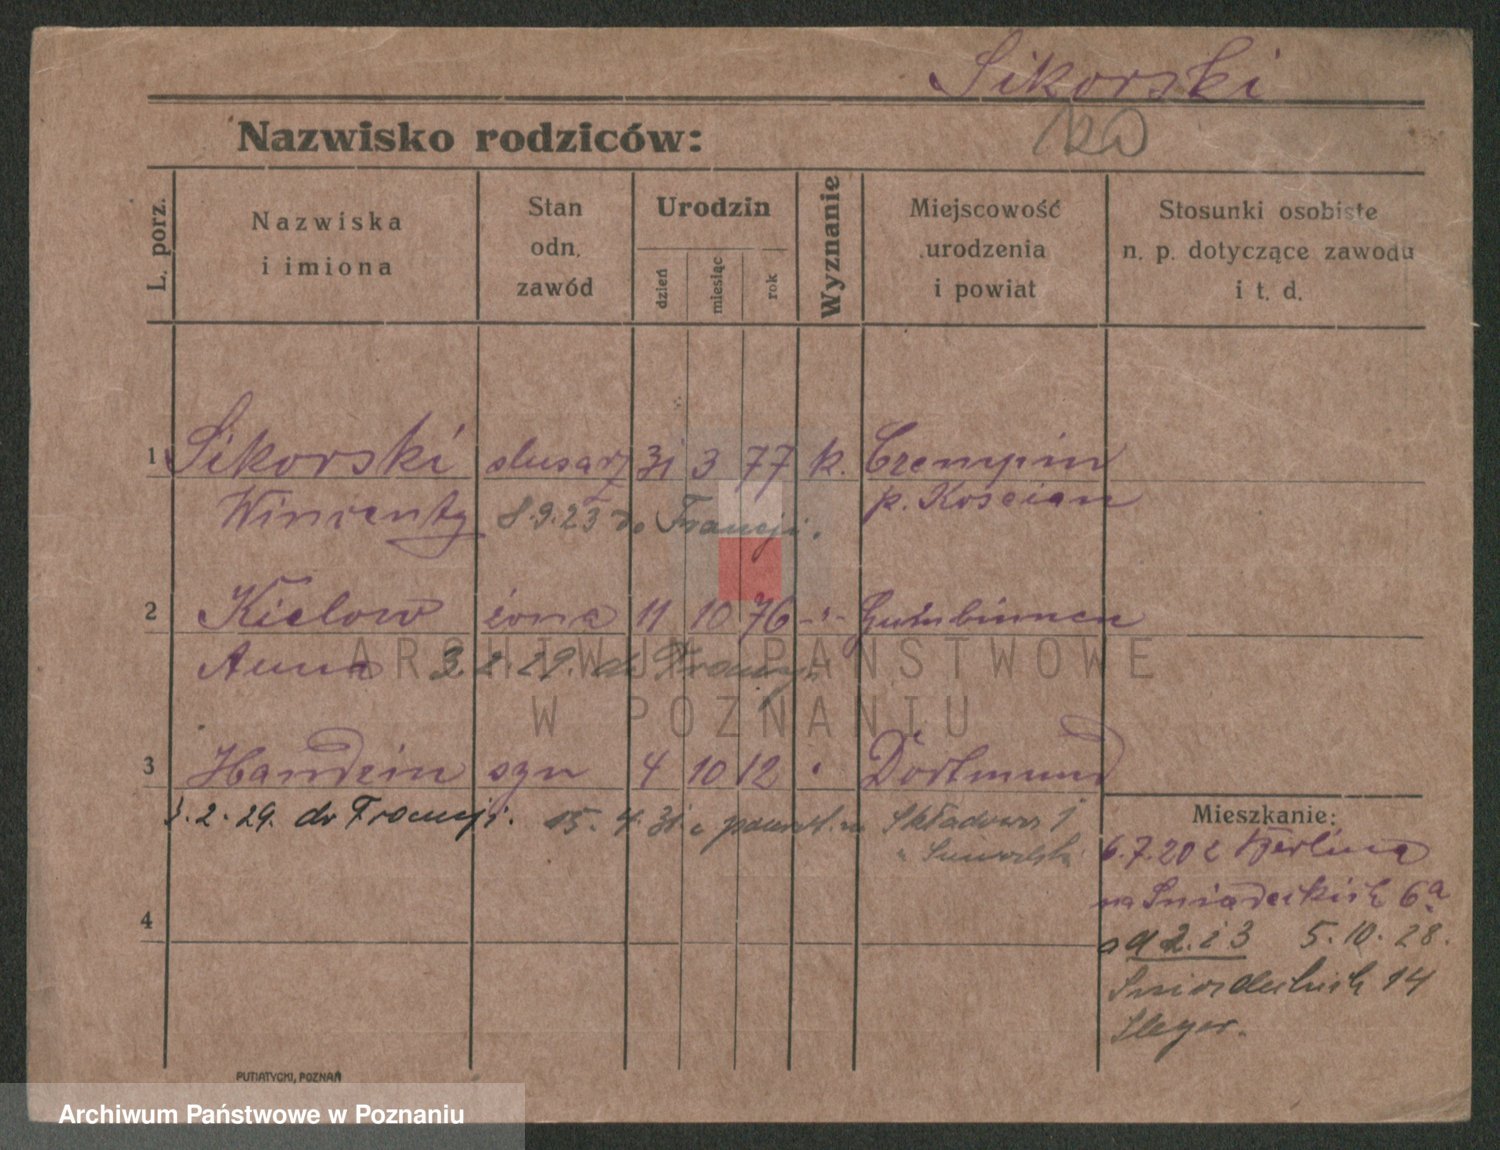 Sikorski
Nazwisko rodziców:
L. porz.
Nazwiska
i imiona
Stan
odn.
zawód
Urodzin
dzień
miesiąc
rok
Wyznanie
Miejscowość
urodzenia
i powiat
Stosunki osobiste
n. p. dotyczące zawodu
i t. d.
1 Sikorski slusarz 31 3 77 k. Czempin
Wincenty 8.9.23 do Francji. p. Koscian
2 Kielow żona 11 10 76 -"- Gumbinnen
Anna 3.2.29. do Francji
3 syn 4 10 12 " Dortmund
3.2.29. do Francji. 15.4.31 z powrot. Składowa
4
Mieszkanie:
6.7.20 z Berlina
na Sniadeckich 6a
od 2. i 3 5.10.28.
Sniadeckich 14
PUTIATYCKI, POZNAŃ
ARCHIWUM PAŃSTWOWE
W POZNANIU
Archiwum Państwowe w Poznaniu